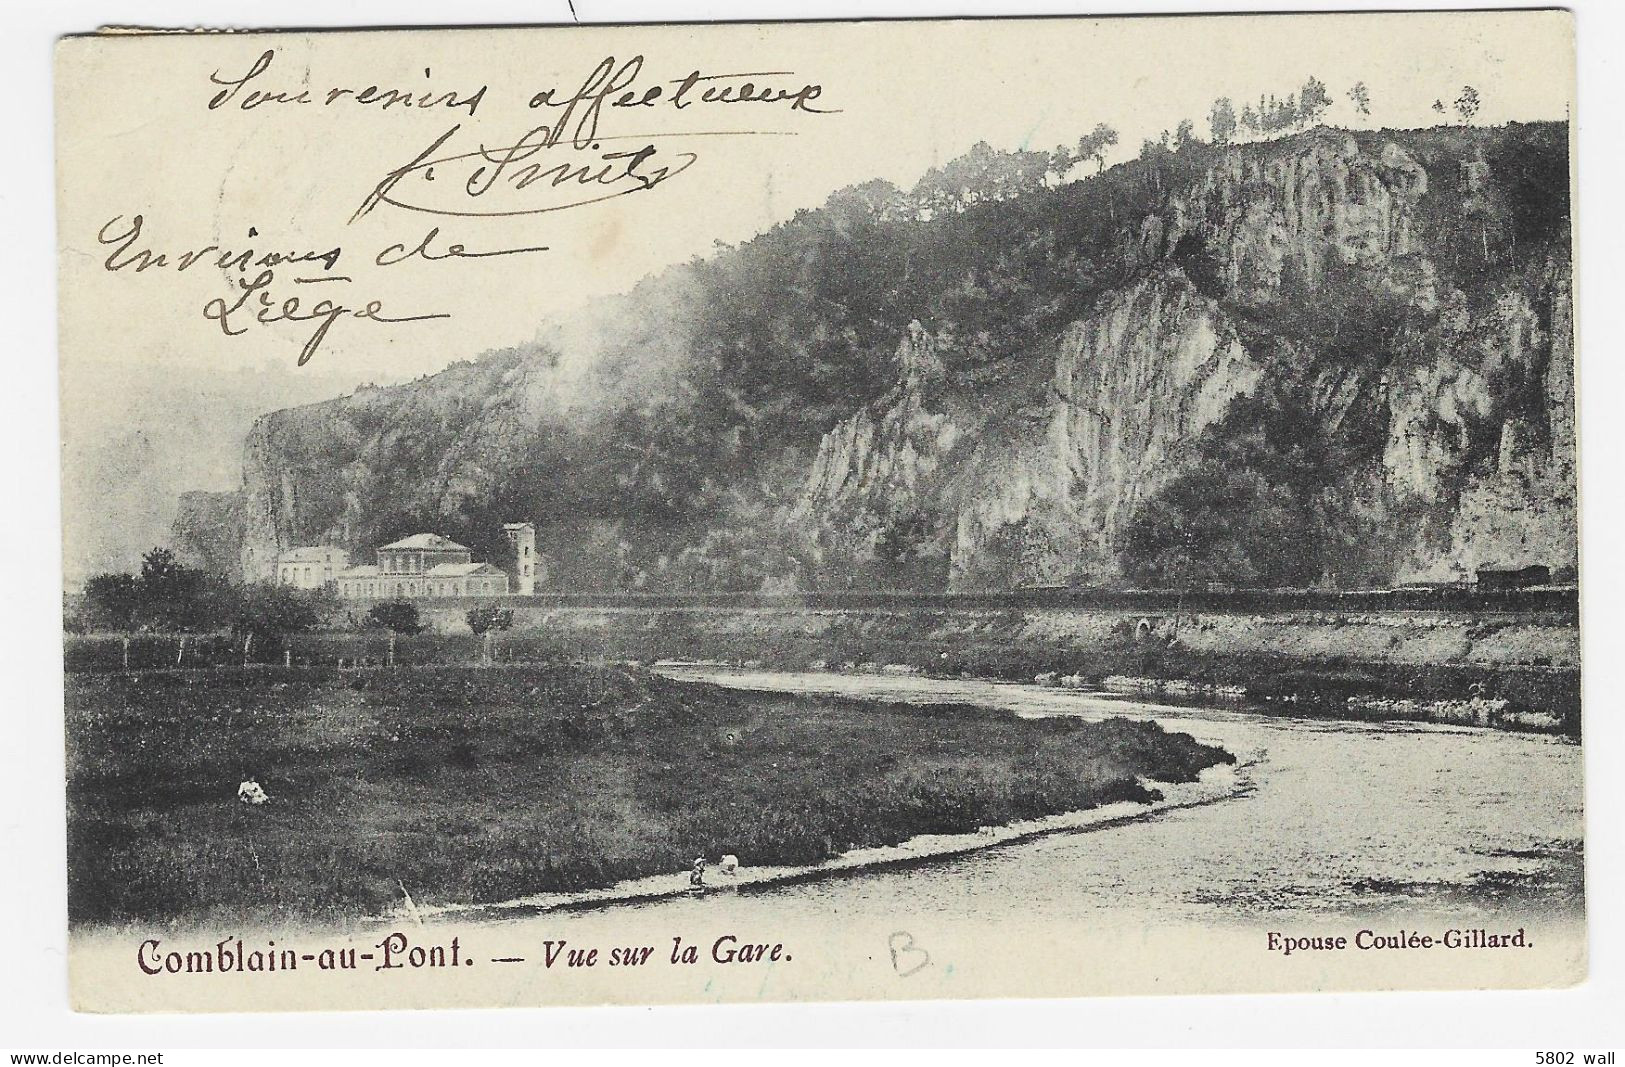 Souvenirs affectueux
f. Smits
Environs de
Liège
Comblain-au-Pont. — Vue sur la Gare.
B
Epouse Coulée-Gillard.
delcampe.net
5802 wall